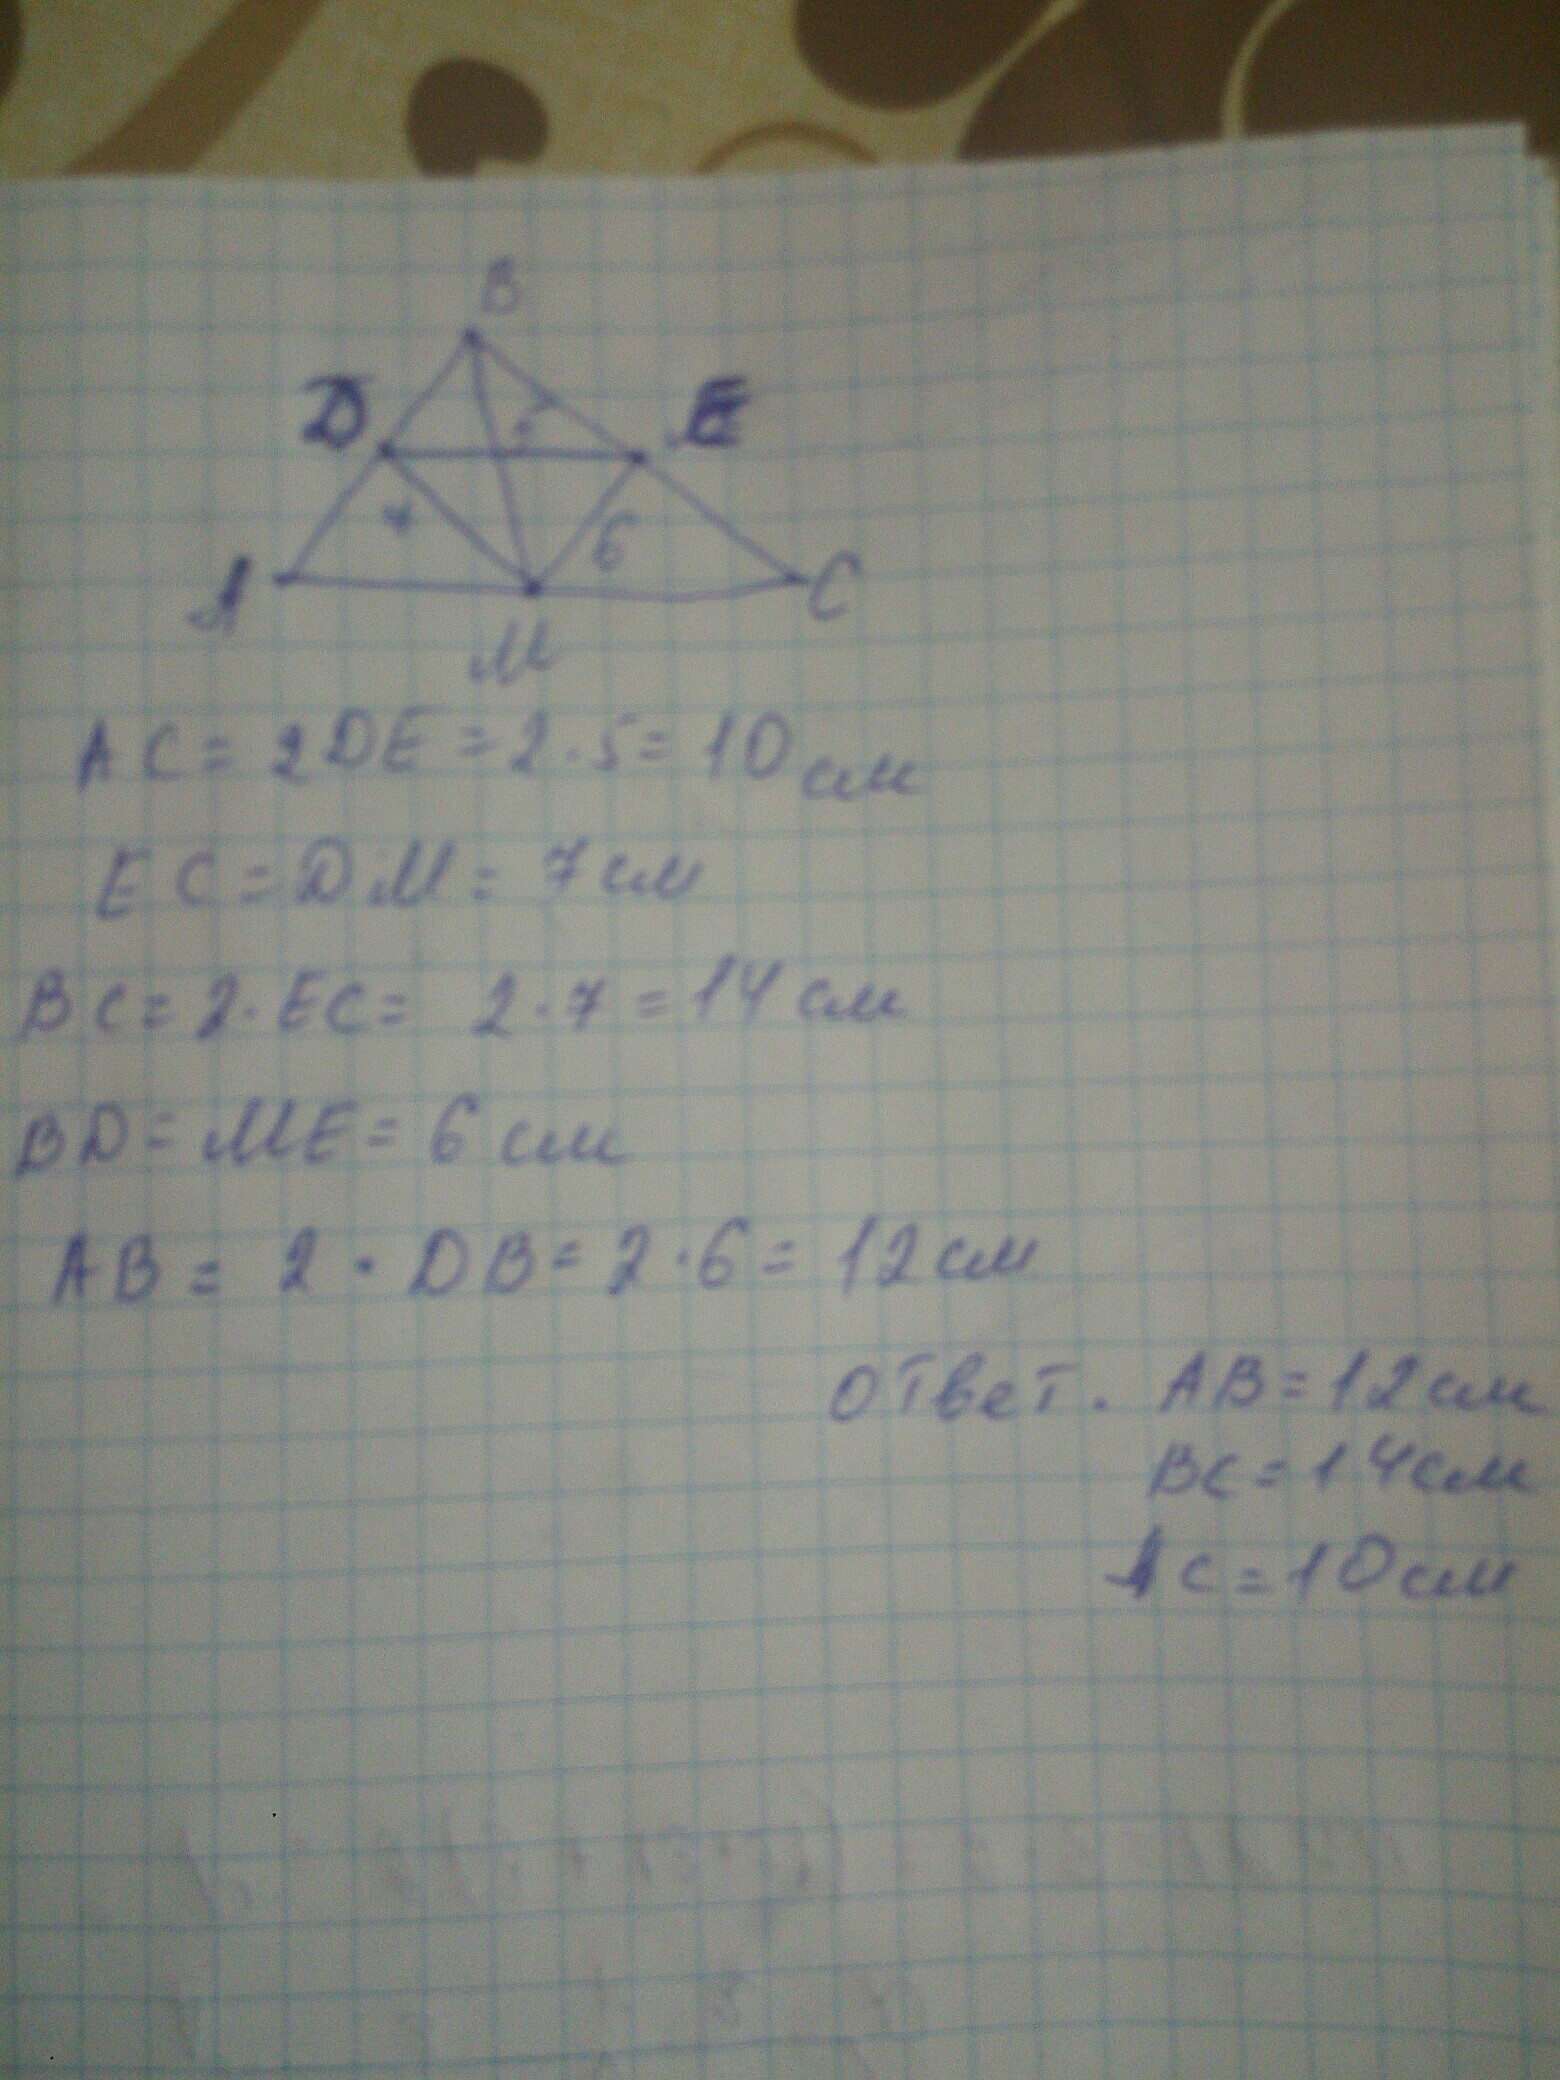 B
D 5 E
7 6
A C
M
AC = 2DE = 2·5 = 10 см
EC = DM = 7 см
BC = 2·EC = 2·7 = 14 см
BD = ME = 6 см
AB = 2·DB = 2·6 = 12 см
Ответ. AB = 12 см
BC = 14 см
AC = 10 см